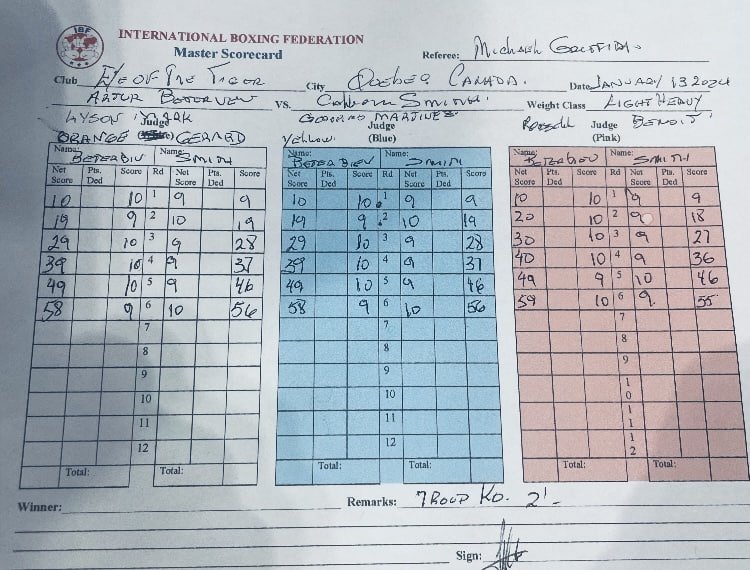 IBF
INTERNATIONAL BOXING FEDERATION
Master Scorecard
Referee: Michael
Club EYE OF THE TIGER City QUEBEC, CANADA. Date JANUARY 13 2024
ARTUR BETERVIEV VS. SMITH Weight Class LIGHT HEAVY
MARK Judge GERARD
ORANGE
MARTINEZ Judge (Blue)
Yellow
Judge BENOIT (Pink)
Name: BETERBIEV Name: SMITH Name: BETERBIEV Name: SMITH Name: BETERBIEV Name: SMITH
Net Score Pts. Ded Score Rd Net Score Pts. Ded Score Net Score Pts. Ded Score Rd Net Score Pts. Ded Score Net Score Pts. Ded Score Rd Net Score Pts. Ded Score
10 10 1 9 9 10 10 1 9 9 10 10 1 9 9
19 9 2 10 19 19 9 2 10 19 20 10 2 9 18
29 10 3 9 28 29 10 3 9 28 30 10 3 9 27
39 10 4 9 37 39 10 4 9 37 40 10 4 9 36
49 10 5 9 46 49 10 5 9 46 49 9 5 10 46
58 9 6 10 56 58 9 6 10 56 59 10 6 9 55
7 7 7
8 8 8
9 9 9
10 10 10
11 11 11
12 12 12
Total: Total: Total: Total: Total: Total:
Winner: Remarks: 7 ROUD KO. 2'-
Sign: